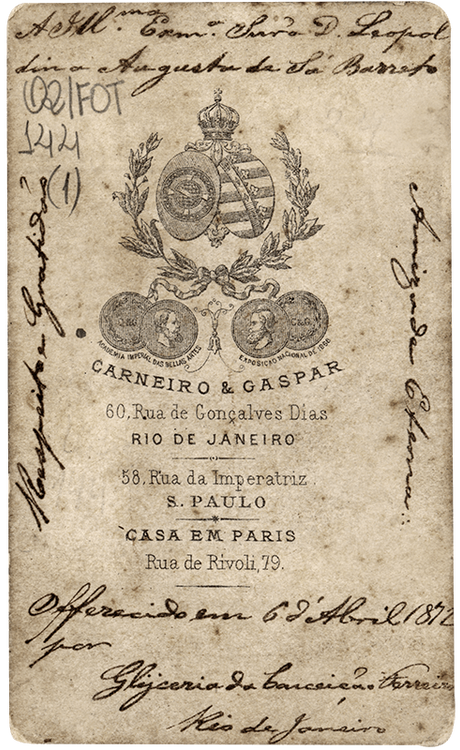 A Ill.ma Exm.a Snrã D. Leopol
dina Augusta de Sá Barreto
02/FOT
144
(1)
Respeito e Gratidão
Amizade Eterna
ACADEMIA IMPERIAL DAS BELLAS ARTES
EXPOSIÇÃO NACIONAL DE 1866
CARNEIRO & GASPAR
60, Rua de Gonçalves Dias
RIO DE JANEIRO
58, Rua da Imperatriz.
S. PAULO
CASA EM PARIS
Rua de Rivoli, 79.
Offerecido em 6 d'Abril 1872
por
Glyceria da Conceição Ferreira
Rio de Janeiro